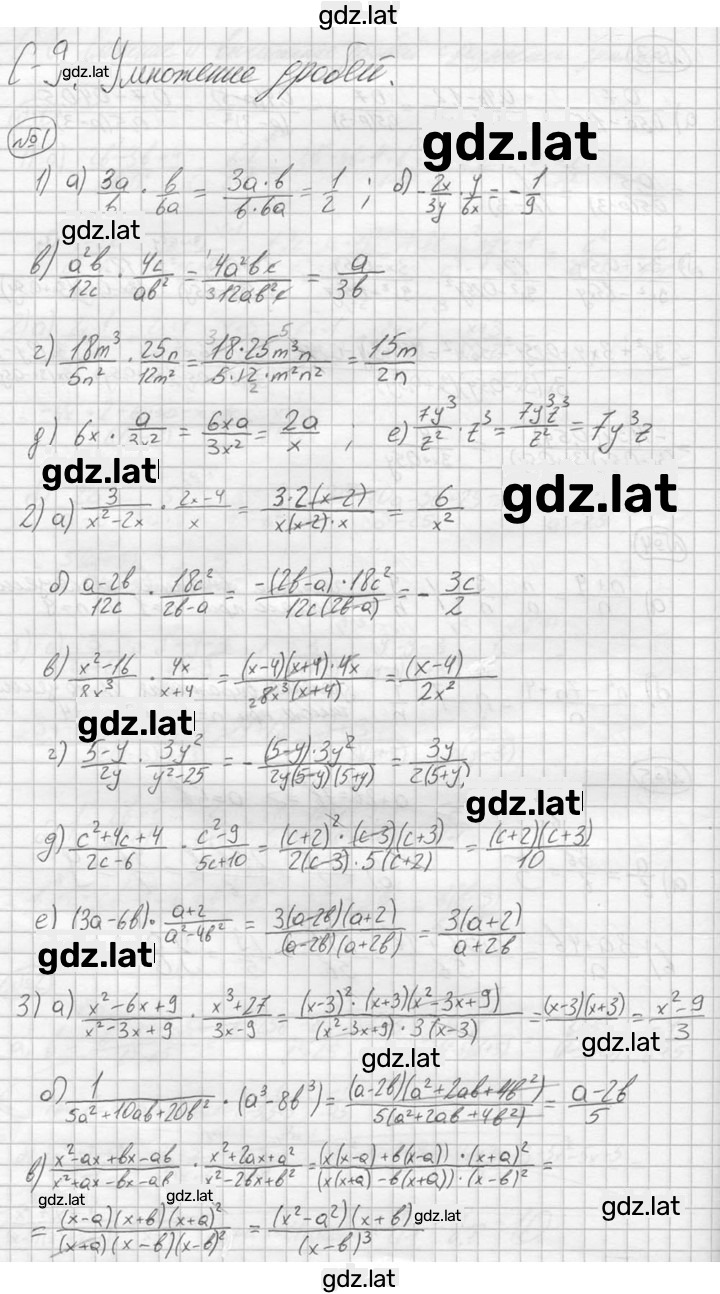 gdz.lat
С-9. Умножение дробей.
gdz.lat
№1
gdz.lat
1) а) 3a/b · b/6a = 3a·b/b·6a = 1/2 ; б) -2x/3y · y/6x = -1/9
gdz.lat
в) a²b/12c · 4c/ab² = 4a²bc/12ab²c = a/3b
г) 18m³/5n² · 25n/12m² = 18·25m³n/5·12·m²n² = 15m/2n
д) 6x · a/3x² = 6xa/3x² = 2a/x ; е) 7y³/z² · z³ = 7y³z³/z² = 7y³z
gdz.lat
gdz.lat
2) а) 3/x²-2x · 2x-4/x = 3·2(x-2)/x(x-2)·x = 6/x²
б) a-2b/12c · 18c²/2b-a = -(2b-a)·18c²/12c(2b-a) = -3c/2
в) x²-16/8x³ · 4x/x+4 = (x-4)(x+4)·4x/8x³(x+4) = (x-4)/2x²
gdz.lat
г) 5-y/2y · 3y²/y²-25 = -(5-y)·3y²/2y(5-y)(5+y) = 3y/2(5+y)
gdz.lat
д) c²+4c+4/2c-6 · c²-9/5c+10 = (c+2)²·(c-3)(c+3)/2(c-3)·5(c+2) = (c+2)(c+3)/10
е) (3a-6b)· a+2/a²-4b² = 3(a-2b)(a+2)/(a-2b)(a+2b) = 3(a+2)/a+2b
gdz.lat
3) а) x²-6x+9/x²-3x+9 · x³+27/3x-9 = (x-3)²·(x+3)(x²-3x+9)/(x²-3x+9)·3(x-3) = (x-3)(x+3)/3 = x²-9/3
gdz.lat
gdz.lat
б) 1/5a²+10ab+20b² · (a³-8b³) = (a-2b)(a²+2ab+4b²)/5(a²+2ab+4b²) = a-2b/5
в) x²-ax+bx-ab/x²+ax-bx-ab · x²+2ax+a²/x²-2bx+b² = (x(x-a)+b(x-a))·(x+a)²/(x(x+a)-b(x+a))·(x-b)² =
gdz.lat
gdz.lat
gdz.lat
= (x-a)(x+b)(x+a)²/(x+a)(x-b)(x-b)² = (x²-a²)(x+b)/(x-b)³
gdz.lat
gdz.lat